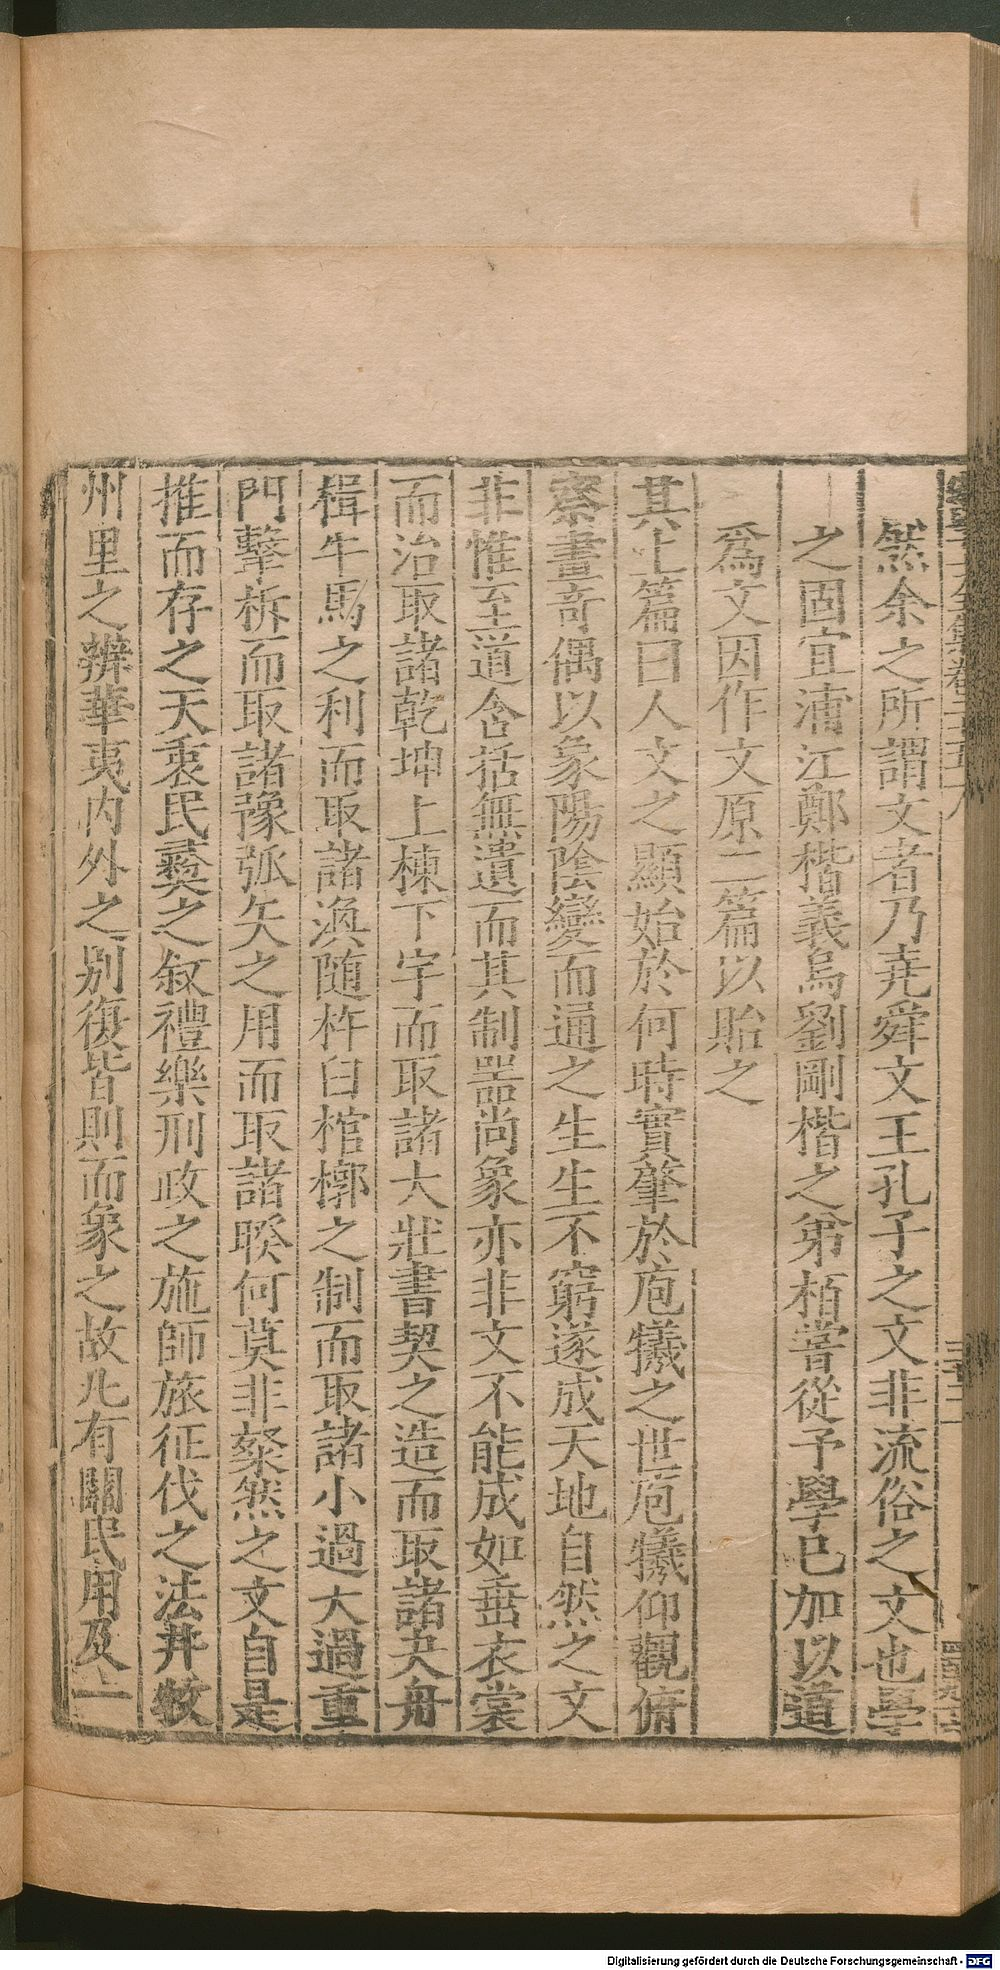 然余之所謂文者乃堯舜文王孔子之文非流俗之文也學
之固宜浦江鄭楷義烏劉剛楷之弟栢嘗從予學已加以道
爲文因作文原二篇以貽之
其上篇曰人文之顯始於何時實肇於庖犧之世庖犧仰觀俯
察畫奇偶以象陽陰變而通之生生不窮遂成天地自然之文
非惟至道含括無遺而其制噐尚象亦非文不能成如垂衣裳
而治取諸乾坤上棟下宇而取諸大壯書契之造而取諸夬舟
楫牛馬之利而取諸渙随杵臼棺槨之制而取諸小過大過重
門擊柝而取諸豫弧矢之用而取諸睽何莫非粲然之文自是
推而存之天衷民彞之叙禮樂刑政之施師旅征伐之法井牧
州里之辨華夷内外之别復皆則而象之故凡有關民用及一
Digitalisierung gefördert durch die Deutsche Forschungsgemeinschaft - DFG